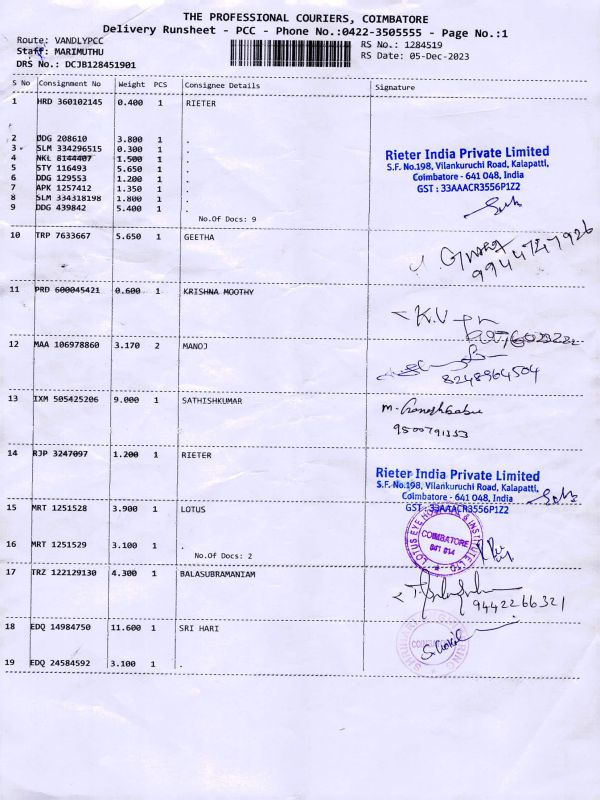 THE PROFESSIONAL COURIERS, COIMBATORE
Delivery Runsheet - PCC - Phone No.:0422-3505555 - Page No.:1
Route: VANDLYPCC RS No.: 1284519
Staff: MARIMUTHU RS Date: 05-Dec-2023
DRS No.: DCJB128451901
S No Consignment No Weight PCS Consignee Details Signature
1 HRD 360102145 0.400 1 RIETER
2 DDG 208610 3.800 1 .
3 SLM 334296515 0.300 1 .
4 NKL 8144407 1.500 1 .
5 STY 116493 5.650 1 .
6 DDG 129553 1.200 1 .
7 APK 1257412 1.350 1 .
8 SLM 334318198 1.800 1 .
9 DDG 439842 5.400 1 .
No.Of Docs: 9
Rieter India Private Limited
S.F. No.198, Vilankuruchi Road, Kalapatti,
Coimbatore - 641 048, India
GST : 33AAACR3556P1Z2
10 TRP 7633667 5.650 1 GEETHA
9944747926
11 PRD 600045421 0.600 1 KRISHNA MOOTHY
K.V
12 MAA 106978860 3.170 2 MANOJ
8248964504
13 IXM 505425206 9.000 1 SATHISHKUMAR
M. Ganeshbabu
9500791353
14 RJP 3247097 1.200 1 RIETER
Rieter India Private Limited
S.F. No.198, Vilankuruchi Road, Kalapatti,
Coimbatore - 641 048, India
GST : 33AAACR3556P1Z2
15 MRT 1251528 3.900 1 LOTUS
16 MRT 1251529 3.100 1 .
No.Of Docs: 2
LOTUS EYE HOSPITAL & INSTITUTE LTD
COIMBATORE
641 014
17 TRZ 122129130 4.300 1 BALASUBRAMANIAM
9442266321
18 EDQ 14984750 11.600 1 SRI HARI
19 EDQ 24584592 3.100 1 .